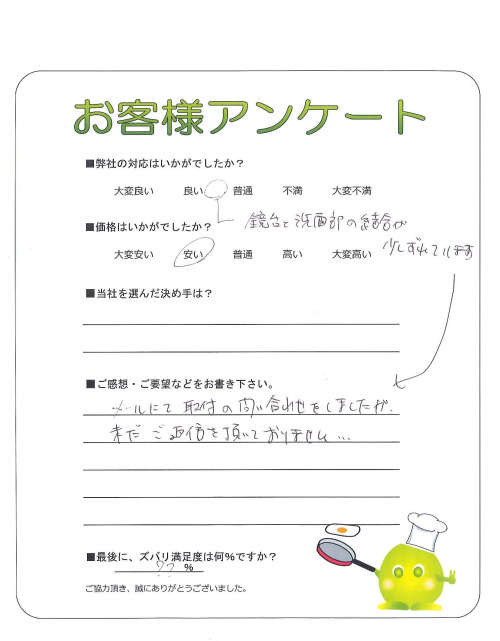 お客様アンケート
■弊社の対応はいかがでしたか？
大変良い 良い 普通 不満 大変不満
■価格はいかがでしたか？
鏡台と洗面部の結合が
少しずれています
大変安い 安い 普通 高い 大変高い
■当社を選んだ決め手は？
■ご感想・ご要望などをお書き下さい。
メールにて取付の問い合わせをしましたが、
未だご返信を頂いておりません…
■最後に、ズバリ満足度は何%ですか？
?? %
ご協力頂き、誠にありがとうございました。